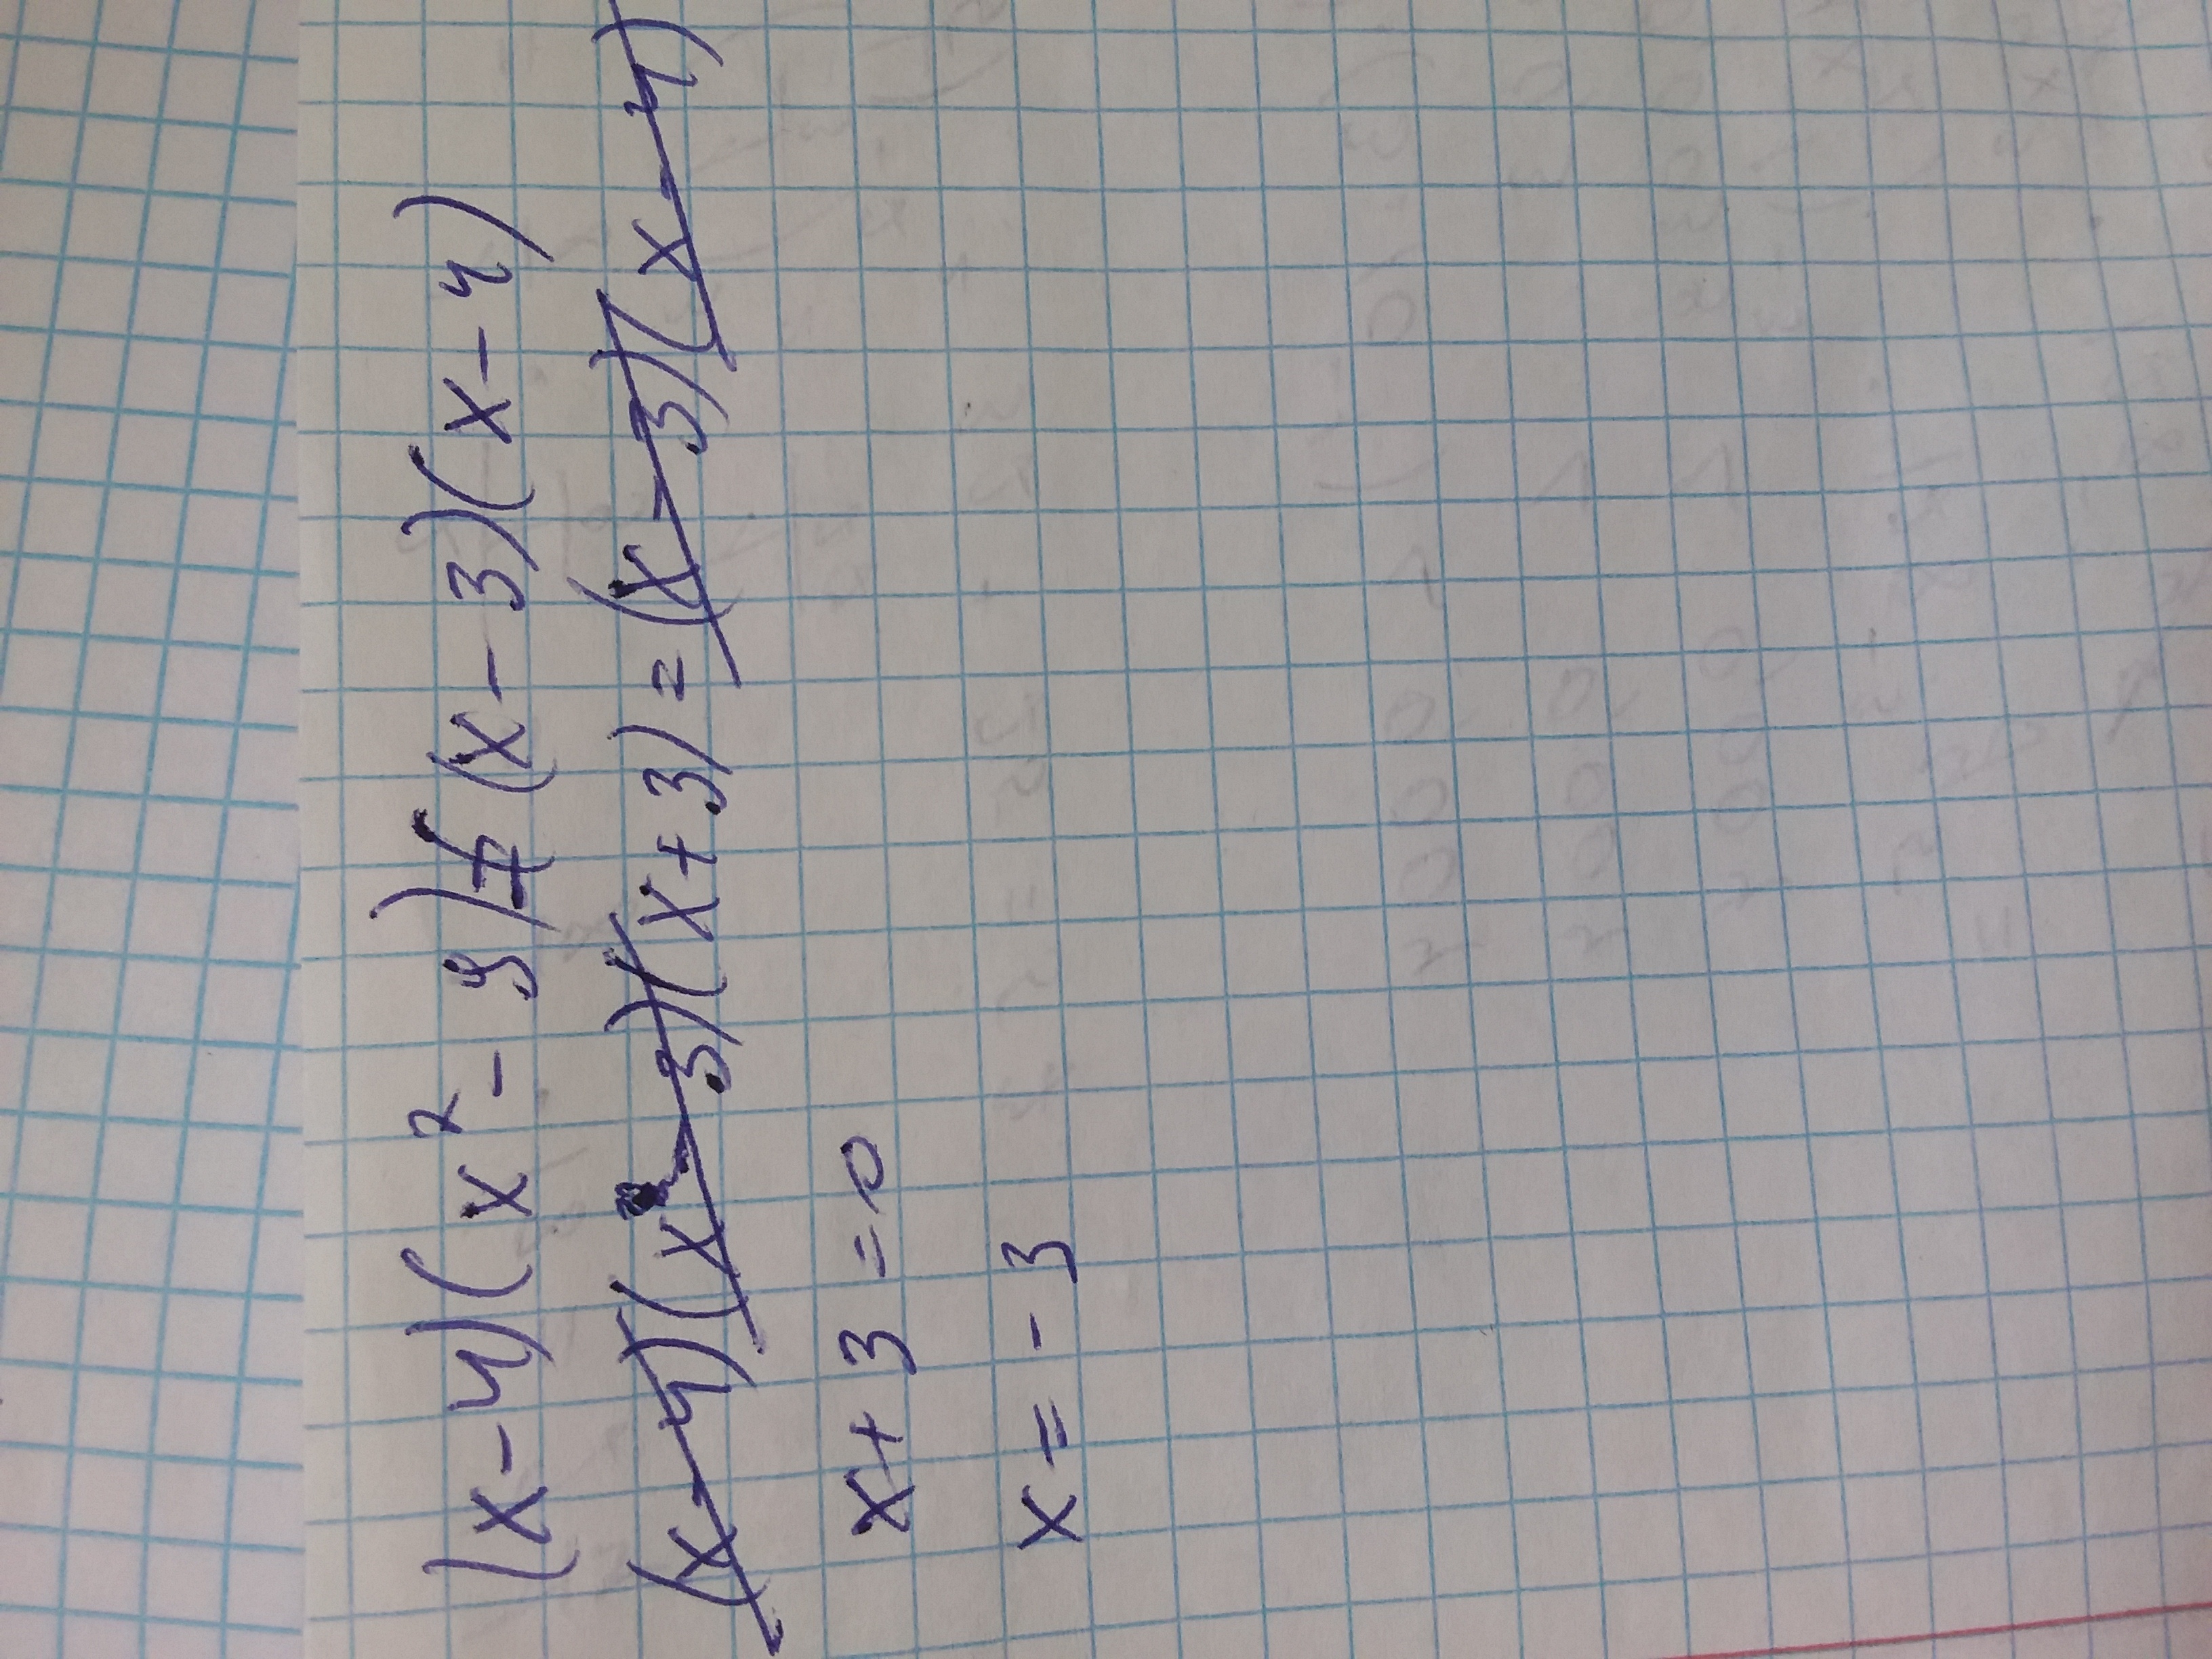 (x-4)(x²-9)=(x-3)(x-4)
(x-4)(x-3)(x+3)=(x-3)(x-4)
x+3=0
x=-3